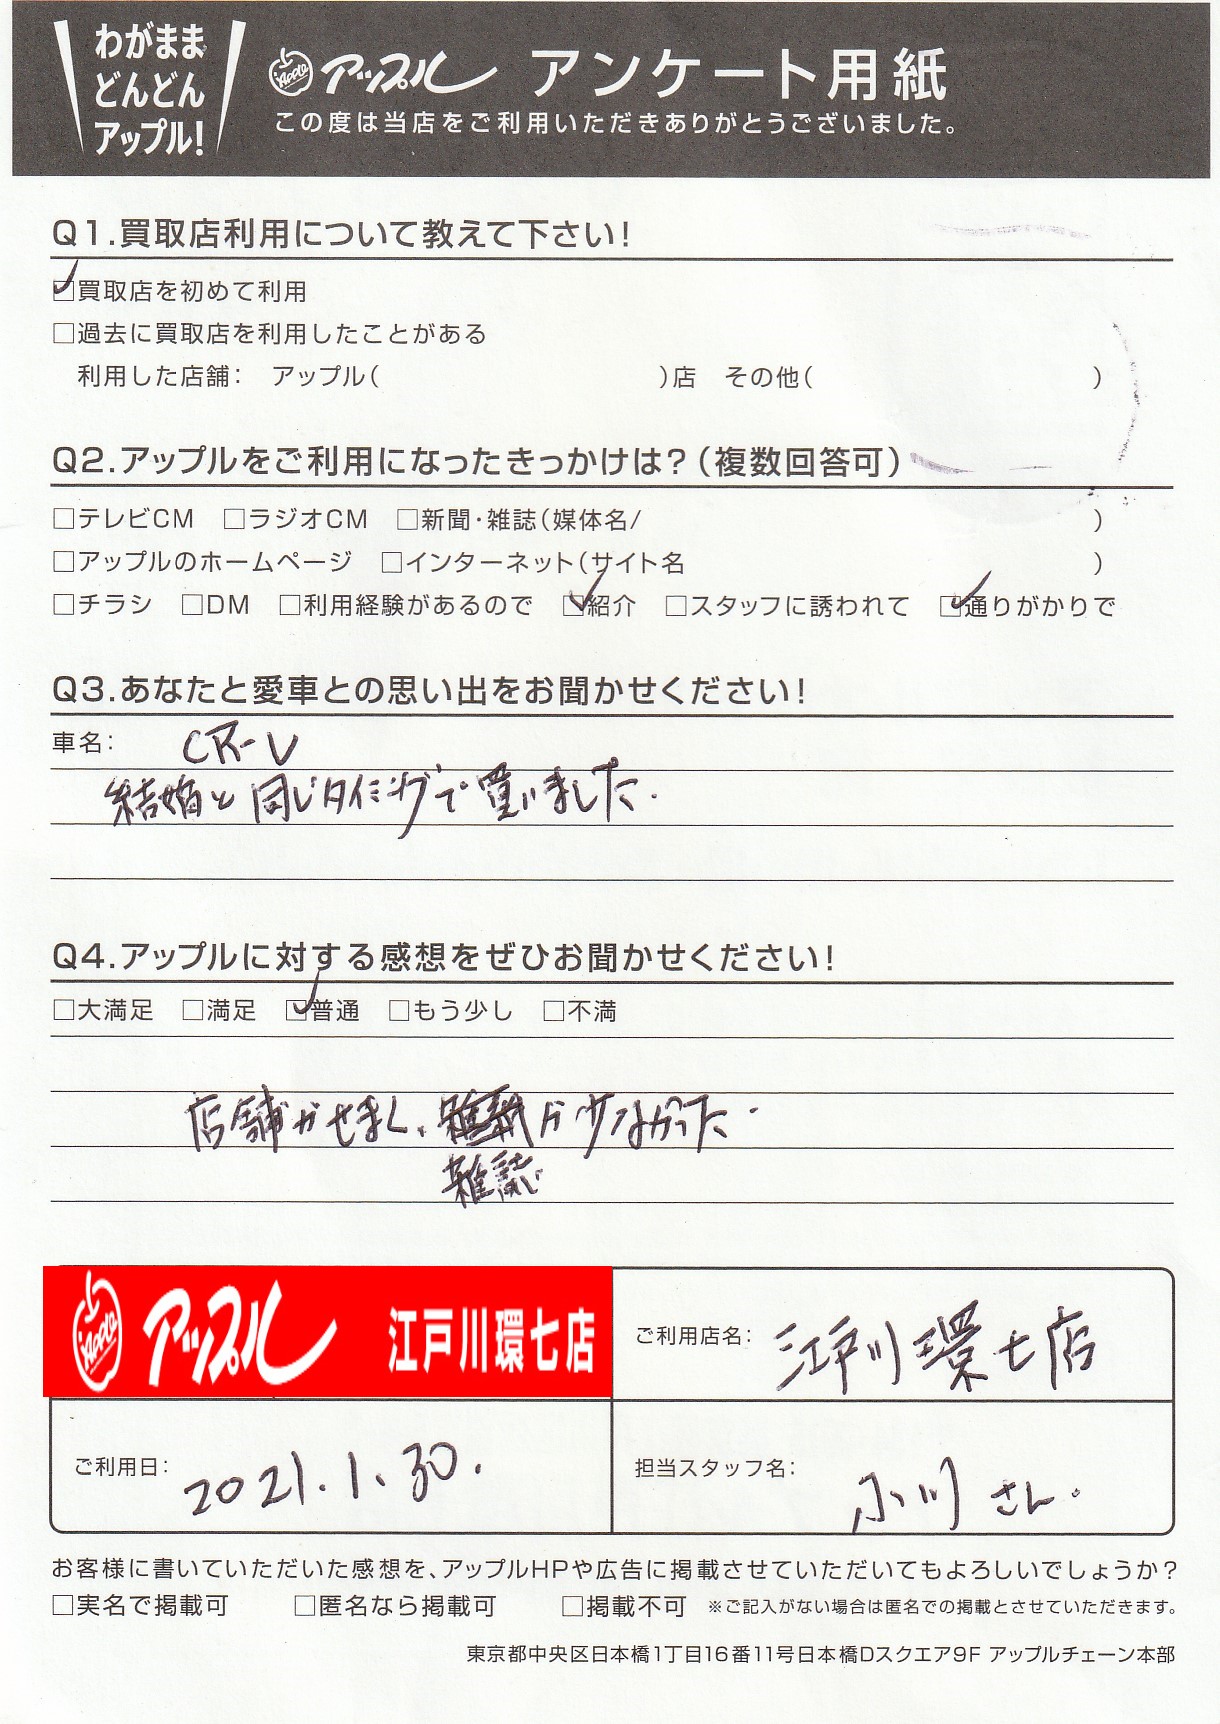 わがまま
どんどん
アップル!
Apple アップル アンケート用紙
この度は当店をご利用いただきありがとうございました。
Q1.買取店利用について教えて下さい!
☑買取店を初めて利用
□過去に買取店を利用したことがある
利用した店舗: アップル( )店 その他( )
Q2.アップルをご利用になったきっかけは?(複数回答可)
□テレビCM □ラジオCM □新聞・雑誌(媒体名/ )
□アップルのホームページ □インターネット(サイト名 )
□チラシ □DM □利用経験があるので ☑紹介 □スタッフに誘われて ☑通りがかりで
Q3.あなたと愛車との思い出をお聞かせください!
車名: CR-V
結婚と同じタイミングで買いました.
Q4.アップルに対する感想をぜひお聞かせください!
□大満足 □満足 ☑普通 □もう少し □不満
店舗がせまく、が少なかった.
雑誌
Apple アップル 江戸川環七店
ご利用店名: 江戸川環七店
ご利用日: 2021.1.30.
担当スタッフ名: 小川さん.
お客様に書いていただいた感想を、アップルHPや広告に掲載させていただいてもよろしいでしょうか?
□実名で掲載可 □匿名なら掲載可 □掲載不可 ※ご記入がない場合は匿名での掲載とさせていただきます。
東京都中央区日本橋1丁目16番11号日本橋Dスクエア9F アップルチェーン本部